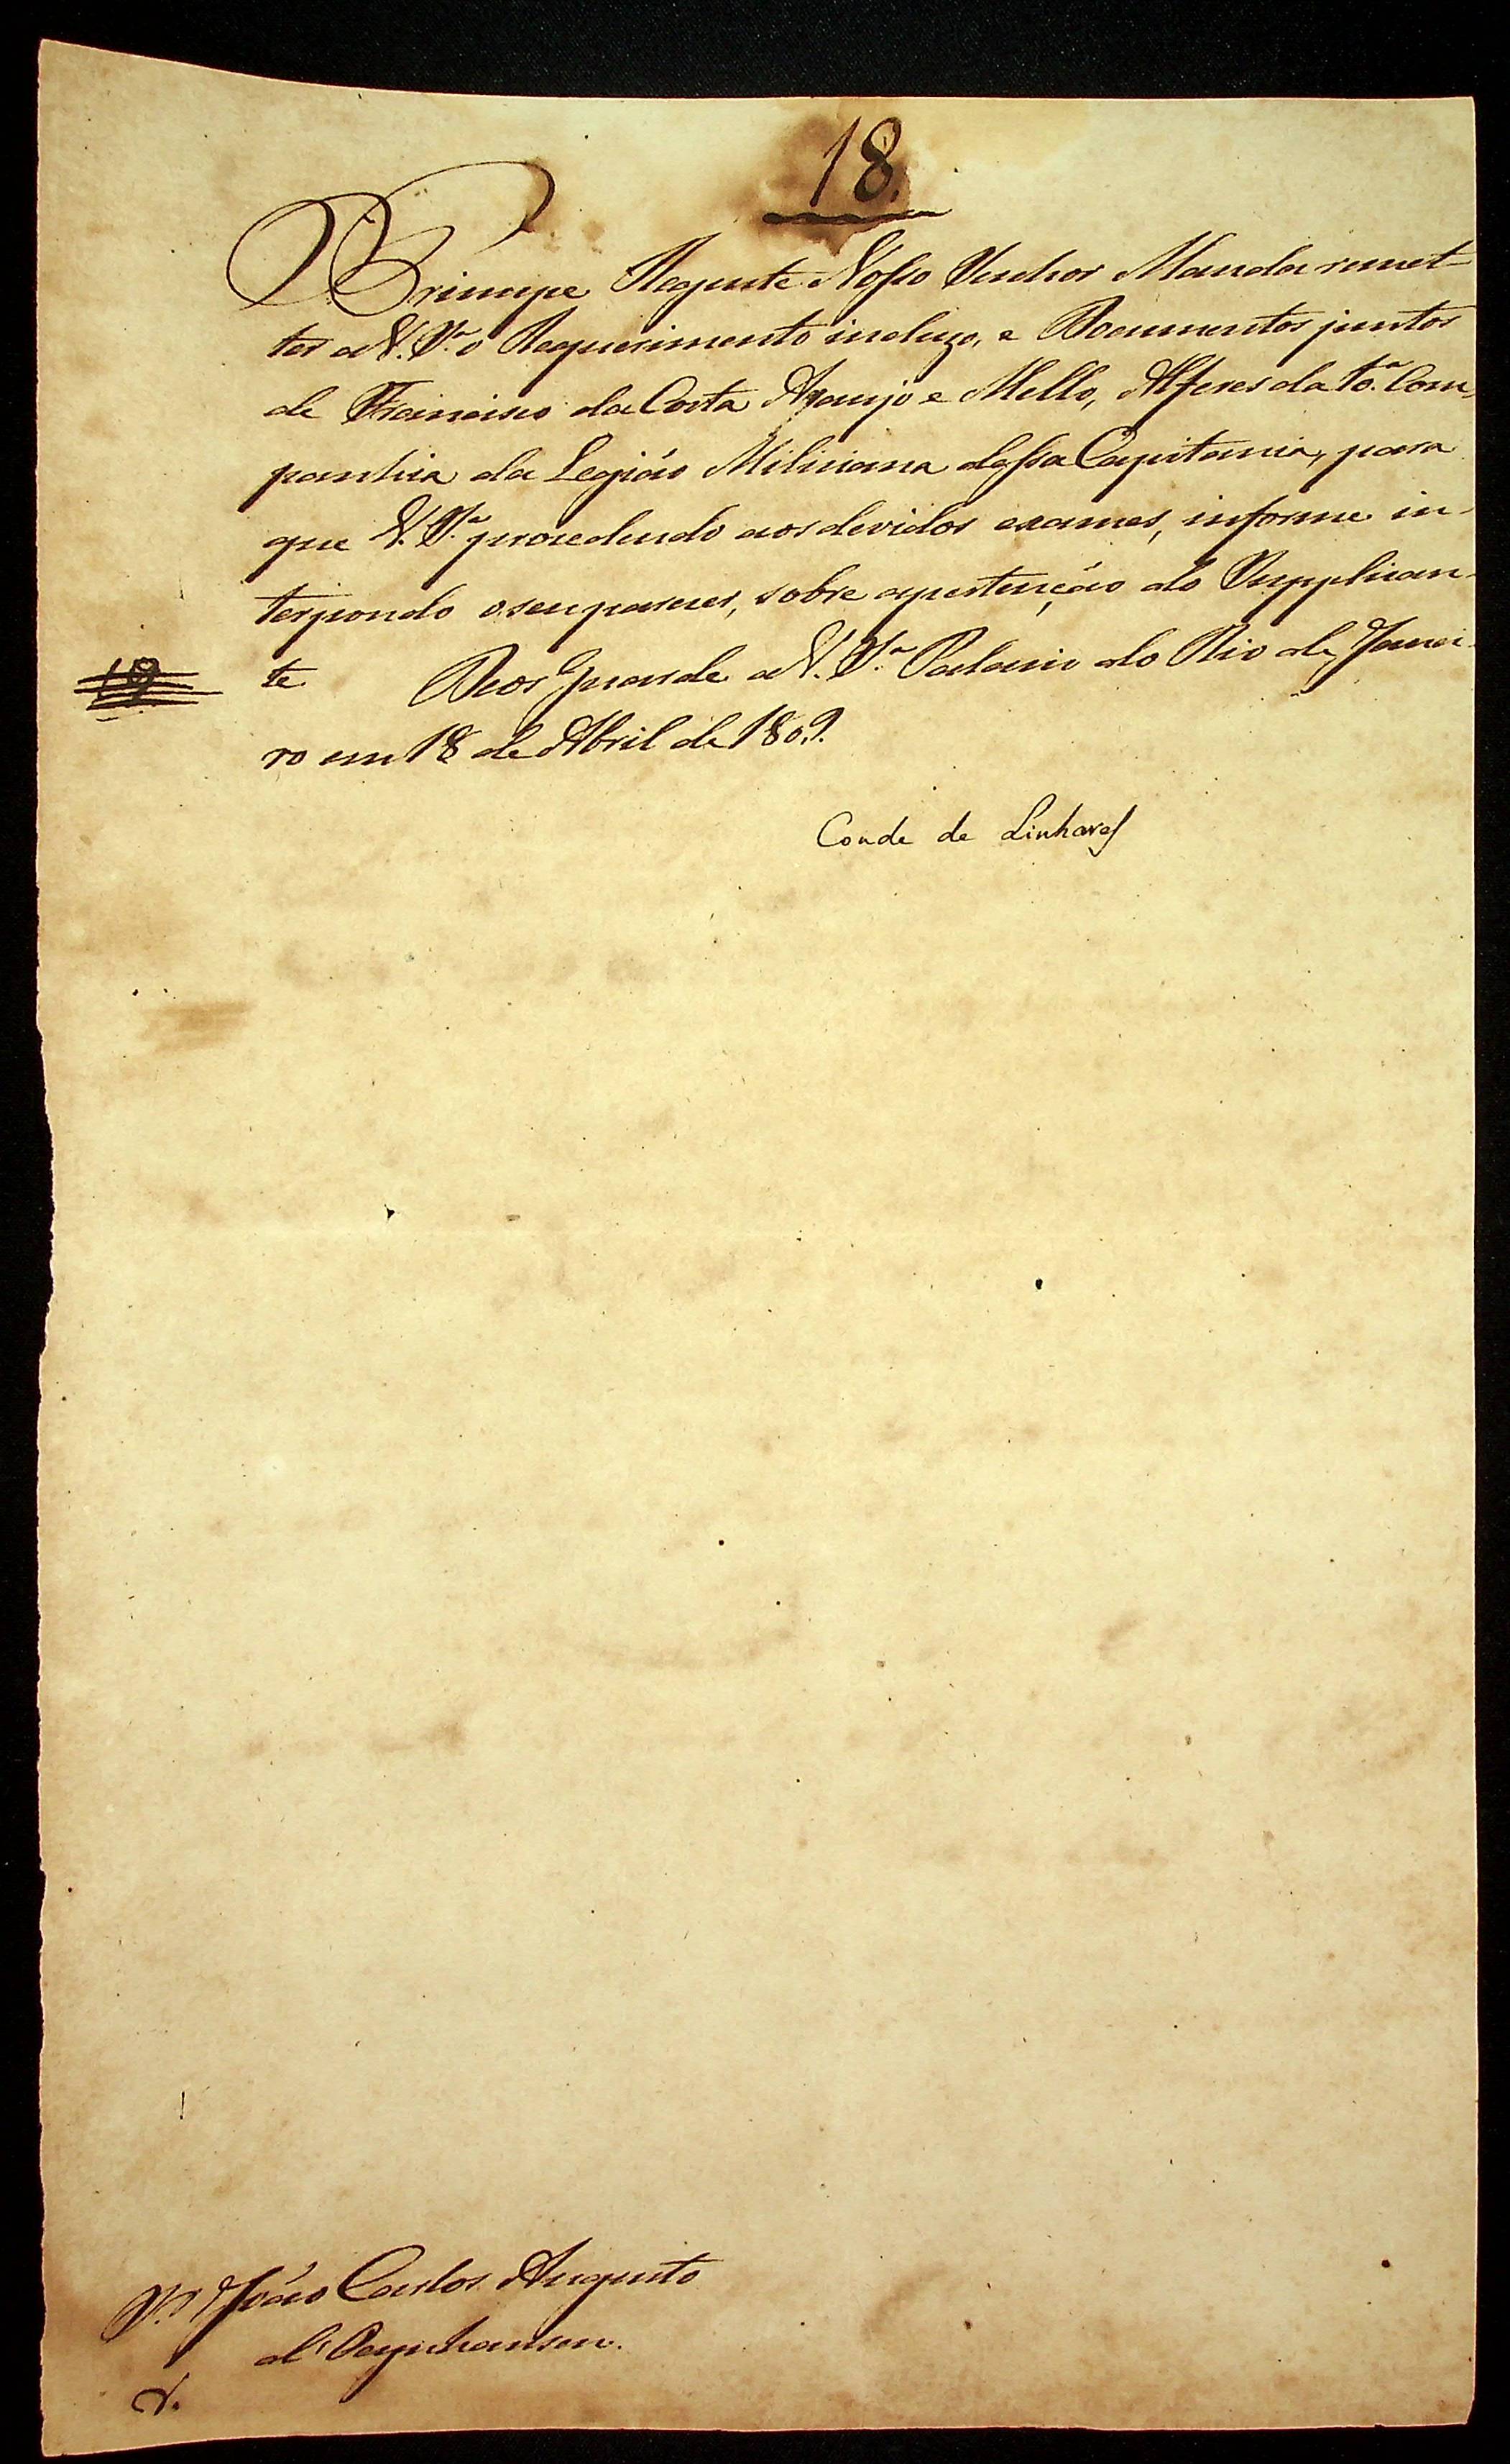 18.
O Principe Regente Nosso Senhor Manda remet-
ter a V. S.ª o Requerimento incluzo, e Documentos juntos
de Francisco da Costa Araujo e Mello, Alferes da Com-
panhia da Legiáo Miliciana dessa Capitania, para
que V. S.ª procedendo aos devidos exames, informe in-
terpondo o seu parecer, sobre a pertençáo do Supplican-
te Deos Guarde a V. S.ª Palacio do Rio de Janei-
19
ro em 18 de Abril de 1809.
Conde de Linhares
S.r Joáo Carlos Augusto
d'Oeynhausen.